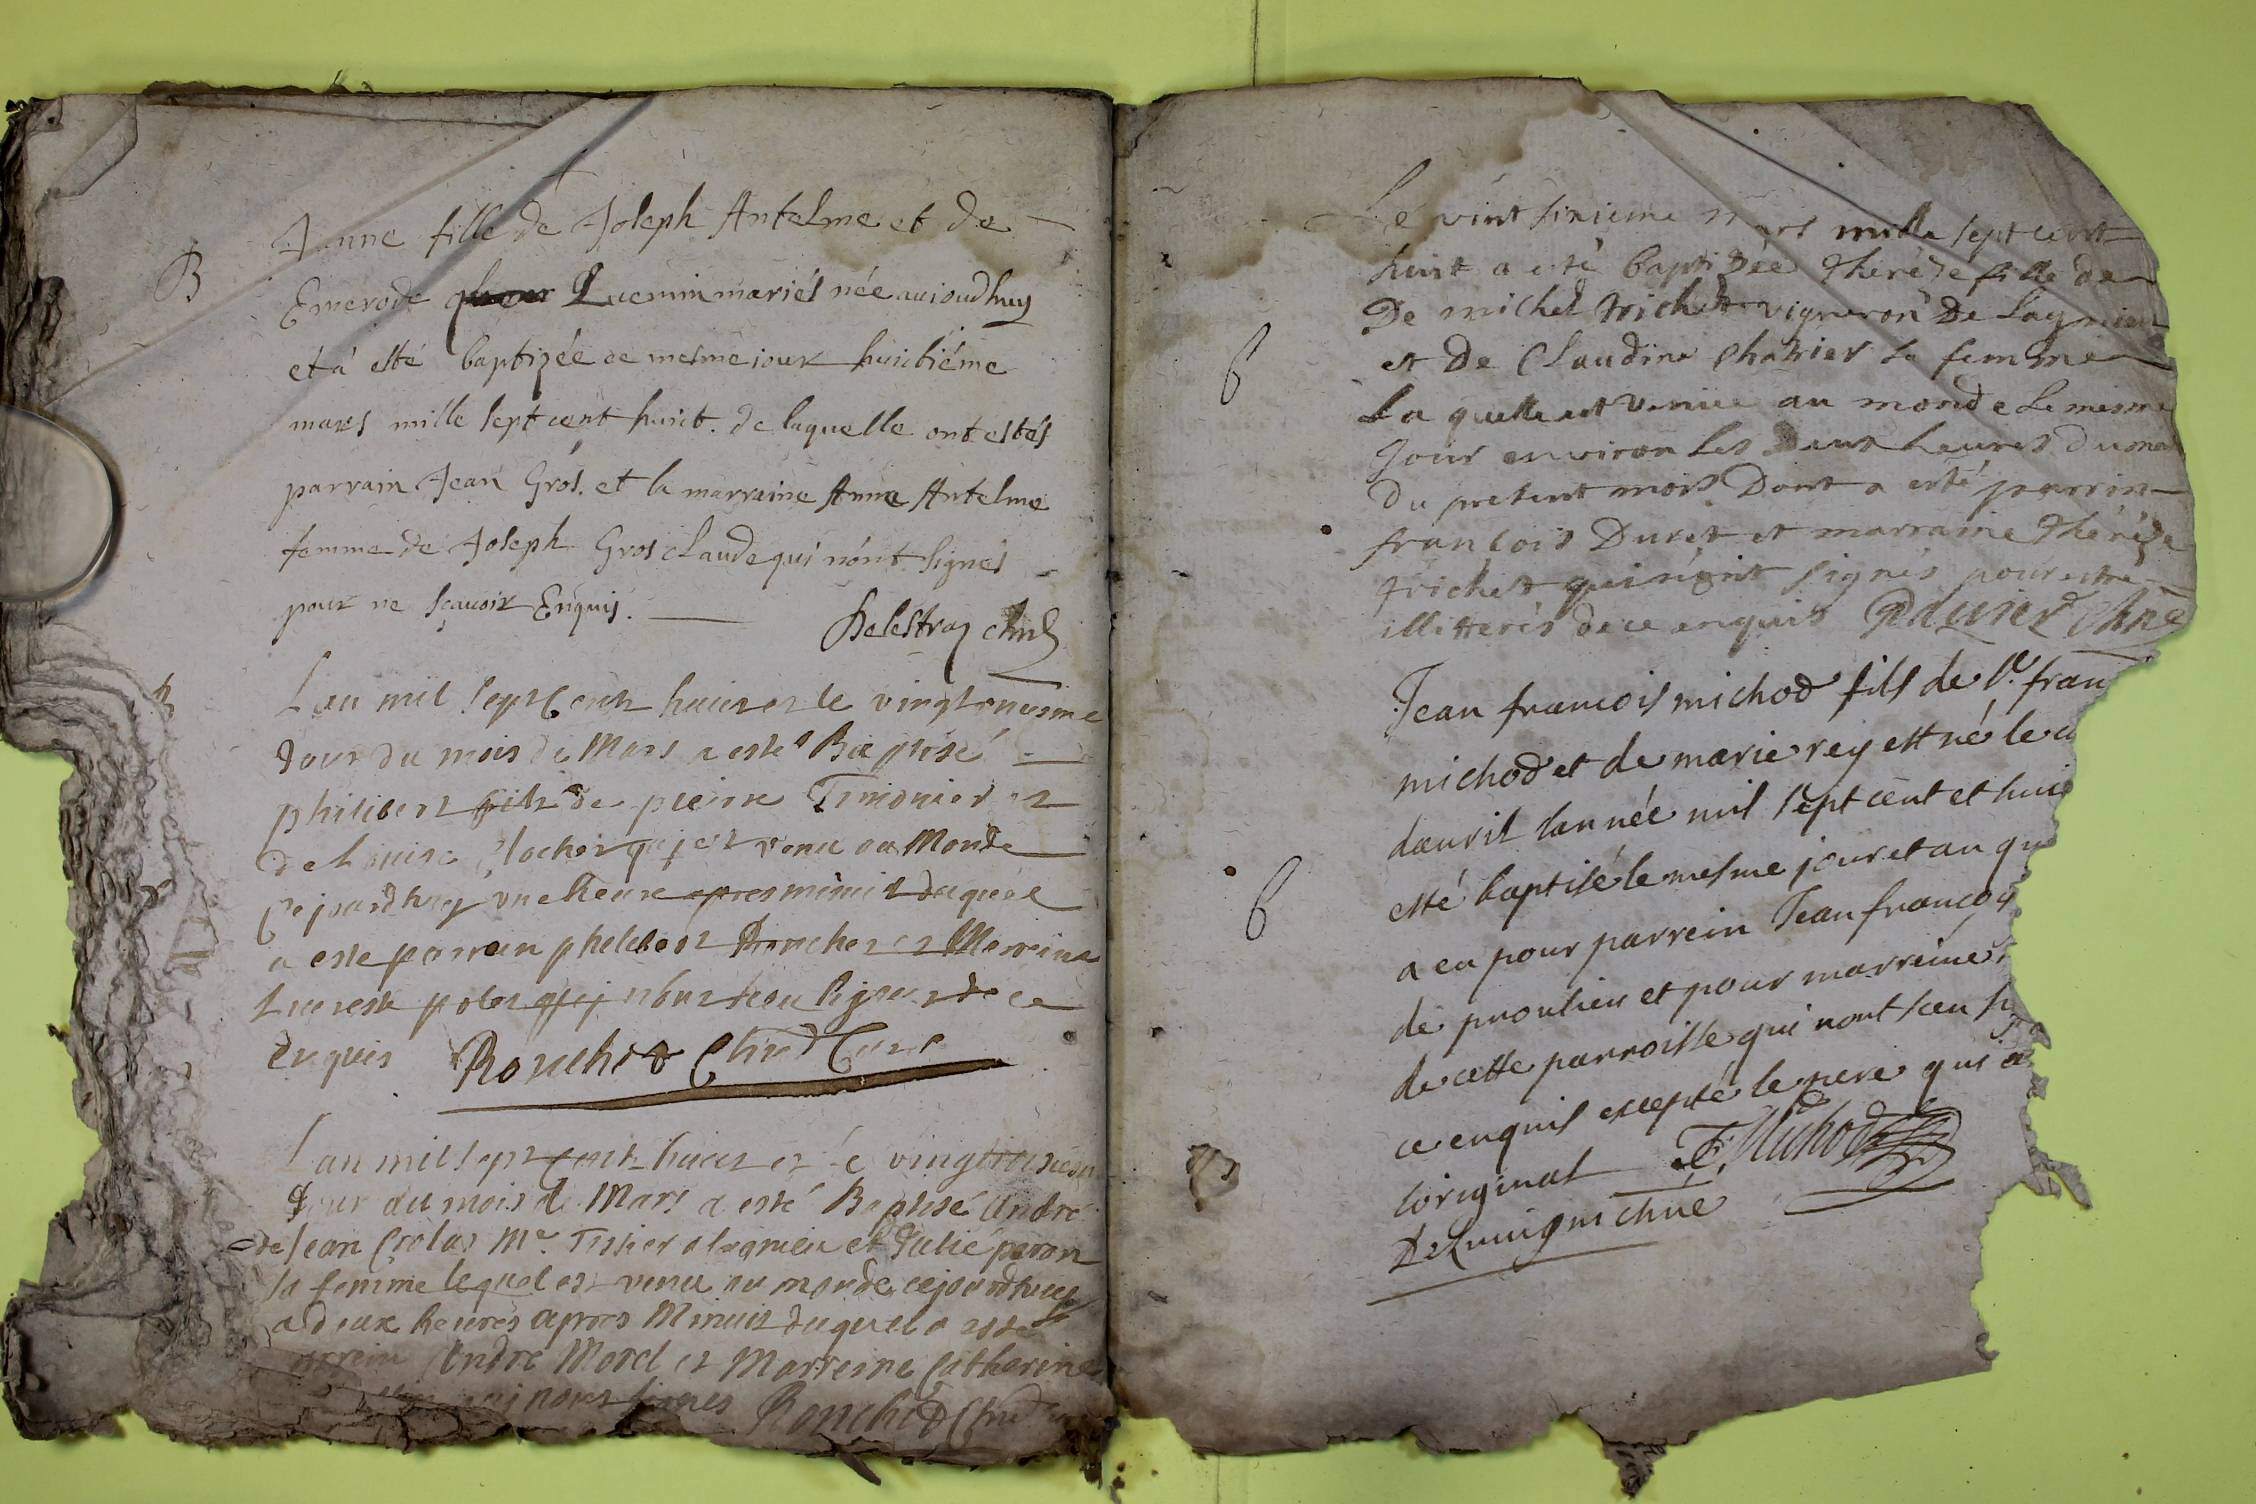 B
Janne fille de Joseph Antelme et de
Emerode Quemin mariés née auiourdhuy
et à esté baptizée ce mesme iour huictiéme
mars mille sept cent huict. de laquelle ont estés
parrain Jean Gros. et la marraine Anne Antelme
femme de Joseph Gros claude qui nont signés
pour ne sçauoir Enquis.
Delestraz chne
B
Lan mil sept Cents huict et le vingt
Jour du mois de Mars a esté Baptisé
philibert fils de pierre Timonier et
de Louise qui est venu au Monde
Cejourdhuy vne heure apres minuit duquel
a este parrain philibert et Marrine
ce
Enquis Ronchet Chne Cure
Lan mil sept Cents huict et le
Jour du mois de Mars a esté Baptisé André
de Jean Crolas Me. Tissier a lagnieu et Julie peron
sa femme lequel est venu au monde cejourdhuy
a deux heures apres Minuit duquel a esté
parrein André Morel et Marreine Catherine
signes Ronchet Chne
Le vint sixieme Mars mille sept cent
huit a eté baptizée thereze fille de
De michel trichet vigneron De Lagnieu
B
et De Claudine Chatrier sa femme
La quelle est venüe au monde le mesme
Jour environ les Deux heures du
du present mois Dont a eté parrin
françois Duret et marraine théréze
trichet qui n'ont signés pour estre
illitterés de ce enquis chne
Jean francois michod fils de Sr. fran
michod et de marie rey est né le
dauril lannée mil sept cent et huic
esté baptisé le mesme jour et au
B
a eu pour parrein Jean francoy
de proulieu et pour marreine
de cette parroisse qui nont sceu
ce enquis excepté le pere qui a
loriginal F. Michod
chne